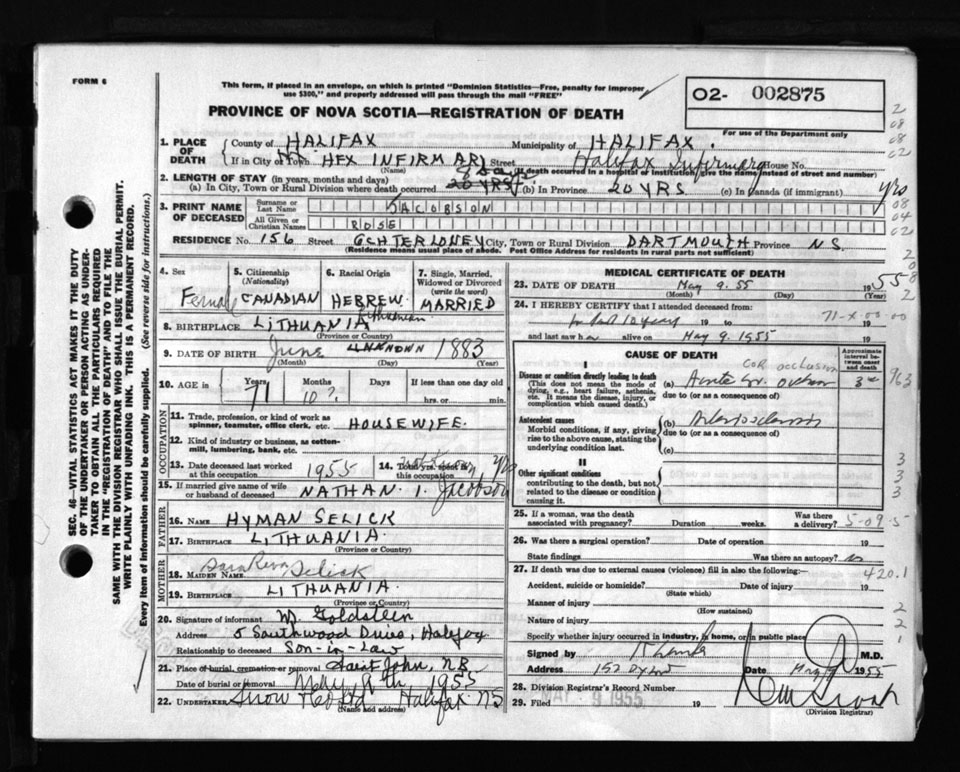 FORM 6
This form, if placed in an envelope, on which is printed "Dominion Statistics—Free, penalty for improper
use $300," and properly addressed will pass through the mail "FREE"
PROVINCE OF NOVA SCOTIA—REGISTRATION OF DEATH
02- 002875
For use of the Department only
1. PLACE OF DEATH
County of HALIFAX Municipality of HALIFAX.
If in City or Town HFX INFIRMARY Street Halifax Infirmary House No.
(Name) (If death occurred in a hospital or institution, give the name instead of street and number)
2. LENGTH OF STAY (in years, months and days)
(a) In City, Town or Rural Division where death occurred 20 YRS (b) In Province 20 YRS (c) In Canada (if immigrant) yrs
3. PRINT NAME OF DECEASED
Surname or Last Name JACOBSON
All Given or Christian Names ROSE
RESIDENCE No. 156 Street OCHTERLONEY City, Town or Rural Division DARTMOUTH Province N.S.
(Residence means usual place of abode. Post Office Address for residents in rural parts not sufficient)
4. Sex Female
5. Citizenship (Nationality) CANADIAN
6. Racial Origin HEBREW
7. Single, Married, Widowed or Divorced (write the word) MARRIED
8. BIRTHPLACE LITHUANIA
(Province or Country)
9. DATE OF BIRTH June UNKNOWN 1883
(Month) (Day) (Year)
10. AGE in Years 71 Months 10 ? Days If less than one day old
hrs. or min.
OCCUPATION
11. Trade, profession, or kind of work as spinner, teamster, office clerk, etc. HOUSEWIFE.
12. Kind of industry or business, as cotton-mill, lumbering, bank, etc.
13. Date deceased last worked at this occupation 1955
14. Total yrs. spent in yrs
15. If married give name of wife or husband of deceased NATHAN I. Jacobson
FATHER
16. NAME HYMAN SELICK
17. BIRTHPLACE LITHUANIA.
(Province or Country)
MOTHER
18. MAIDEN NAME Sara Selick
19. BIRTHPLACE LITHUANIA.
(Province or Country)
20. Signature of informant M. Goldstein
Address 5 Southwood Drive, Halifax
Relationship to deceased Son-in-Law
21. Place of burial, cremation or removal Saint John, NB
Date of burial or removal May 9th 1955
22. UNDERTAKER Snow & Co Ltd Halifax NS
(Name and address)
SEC. 46—VITAL STATISTICS ACT MAKES IT THE DUTY
OF THE UNDERTAKER OR PERSON ACTING AS UNDER-
TAKER TO OBTAIN ALL THE PARTICULARS REQUIRED
IN THE "REGISTRATION OF DEATH" AND TO FILE THE
SAME WITH THE DIVISION REGISTRAR WHO SHALL ISSUE THE BURIAL PERMIT.
WRITE PLAINLY WITH UNFADING INK. THIS IS A PERMANENT RECORD.
Every item of information should be carefully supplied. (See reverse side for instructions.)
MEDICAL CERTIFICATE OF DEATH
23. DATE OF DEATH May 9. 55 1955
(Month) (Day) (Year)
24. I HEREBY CERTIFY that I attended deceased from
10 years 19 to 19
and last saw her alive on May 9. 1955 19
CAUSE OF DEATH
Approximate interval between onset and death
I
Disease or condition directly leading to death
(This does not mean the mode of dying, e.g., heart failure, asthenia, etc. It means the disease, injury, or complication which caused death.)
cor occlusion
(a) Acute cor. occlusion
due to (or as a consequence of)
Antecedent causes
Morbid conditions, if any, giving rise to the above cause, stating the underlying condition last.
(b) Arteriosclerosis
due to (or as a consequence of)
(c)
II
Other significant conditions
contributing to the death, but not related to the disease or condition causing it.
25. If a woman, was the death associated with pregnancy? Duration weeks. Was there a delivery? 5-09.5
26. Was there a surgical operation? Date of operation 19
State findings Was there an autopsy? no
27. If death was due to external causes (violence) fill in also the following: 420.1
Accident, suicide or homicide? Date of injury 19
(State which)
Manner of injury
(How sustained)
Nature of injury
Specify whether injury occurred in industry, in home, or in public place
Signed by M.D.
Address Date May 9 1955
28. Division Registrar's Record Number
29. Filed MAY 9 1955 19
(Division Registrar)